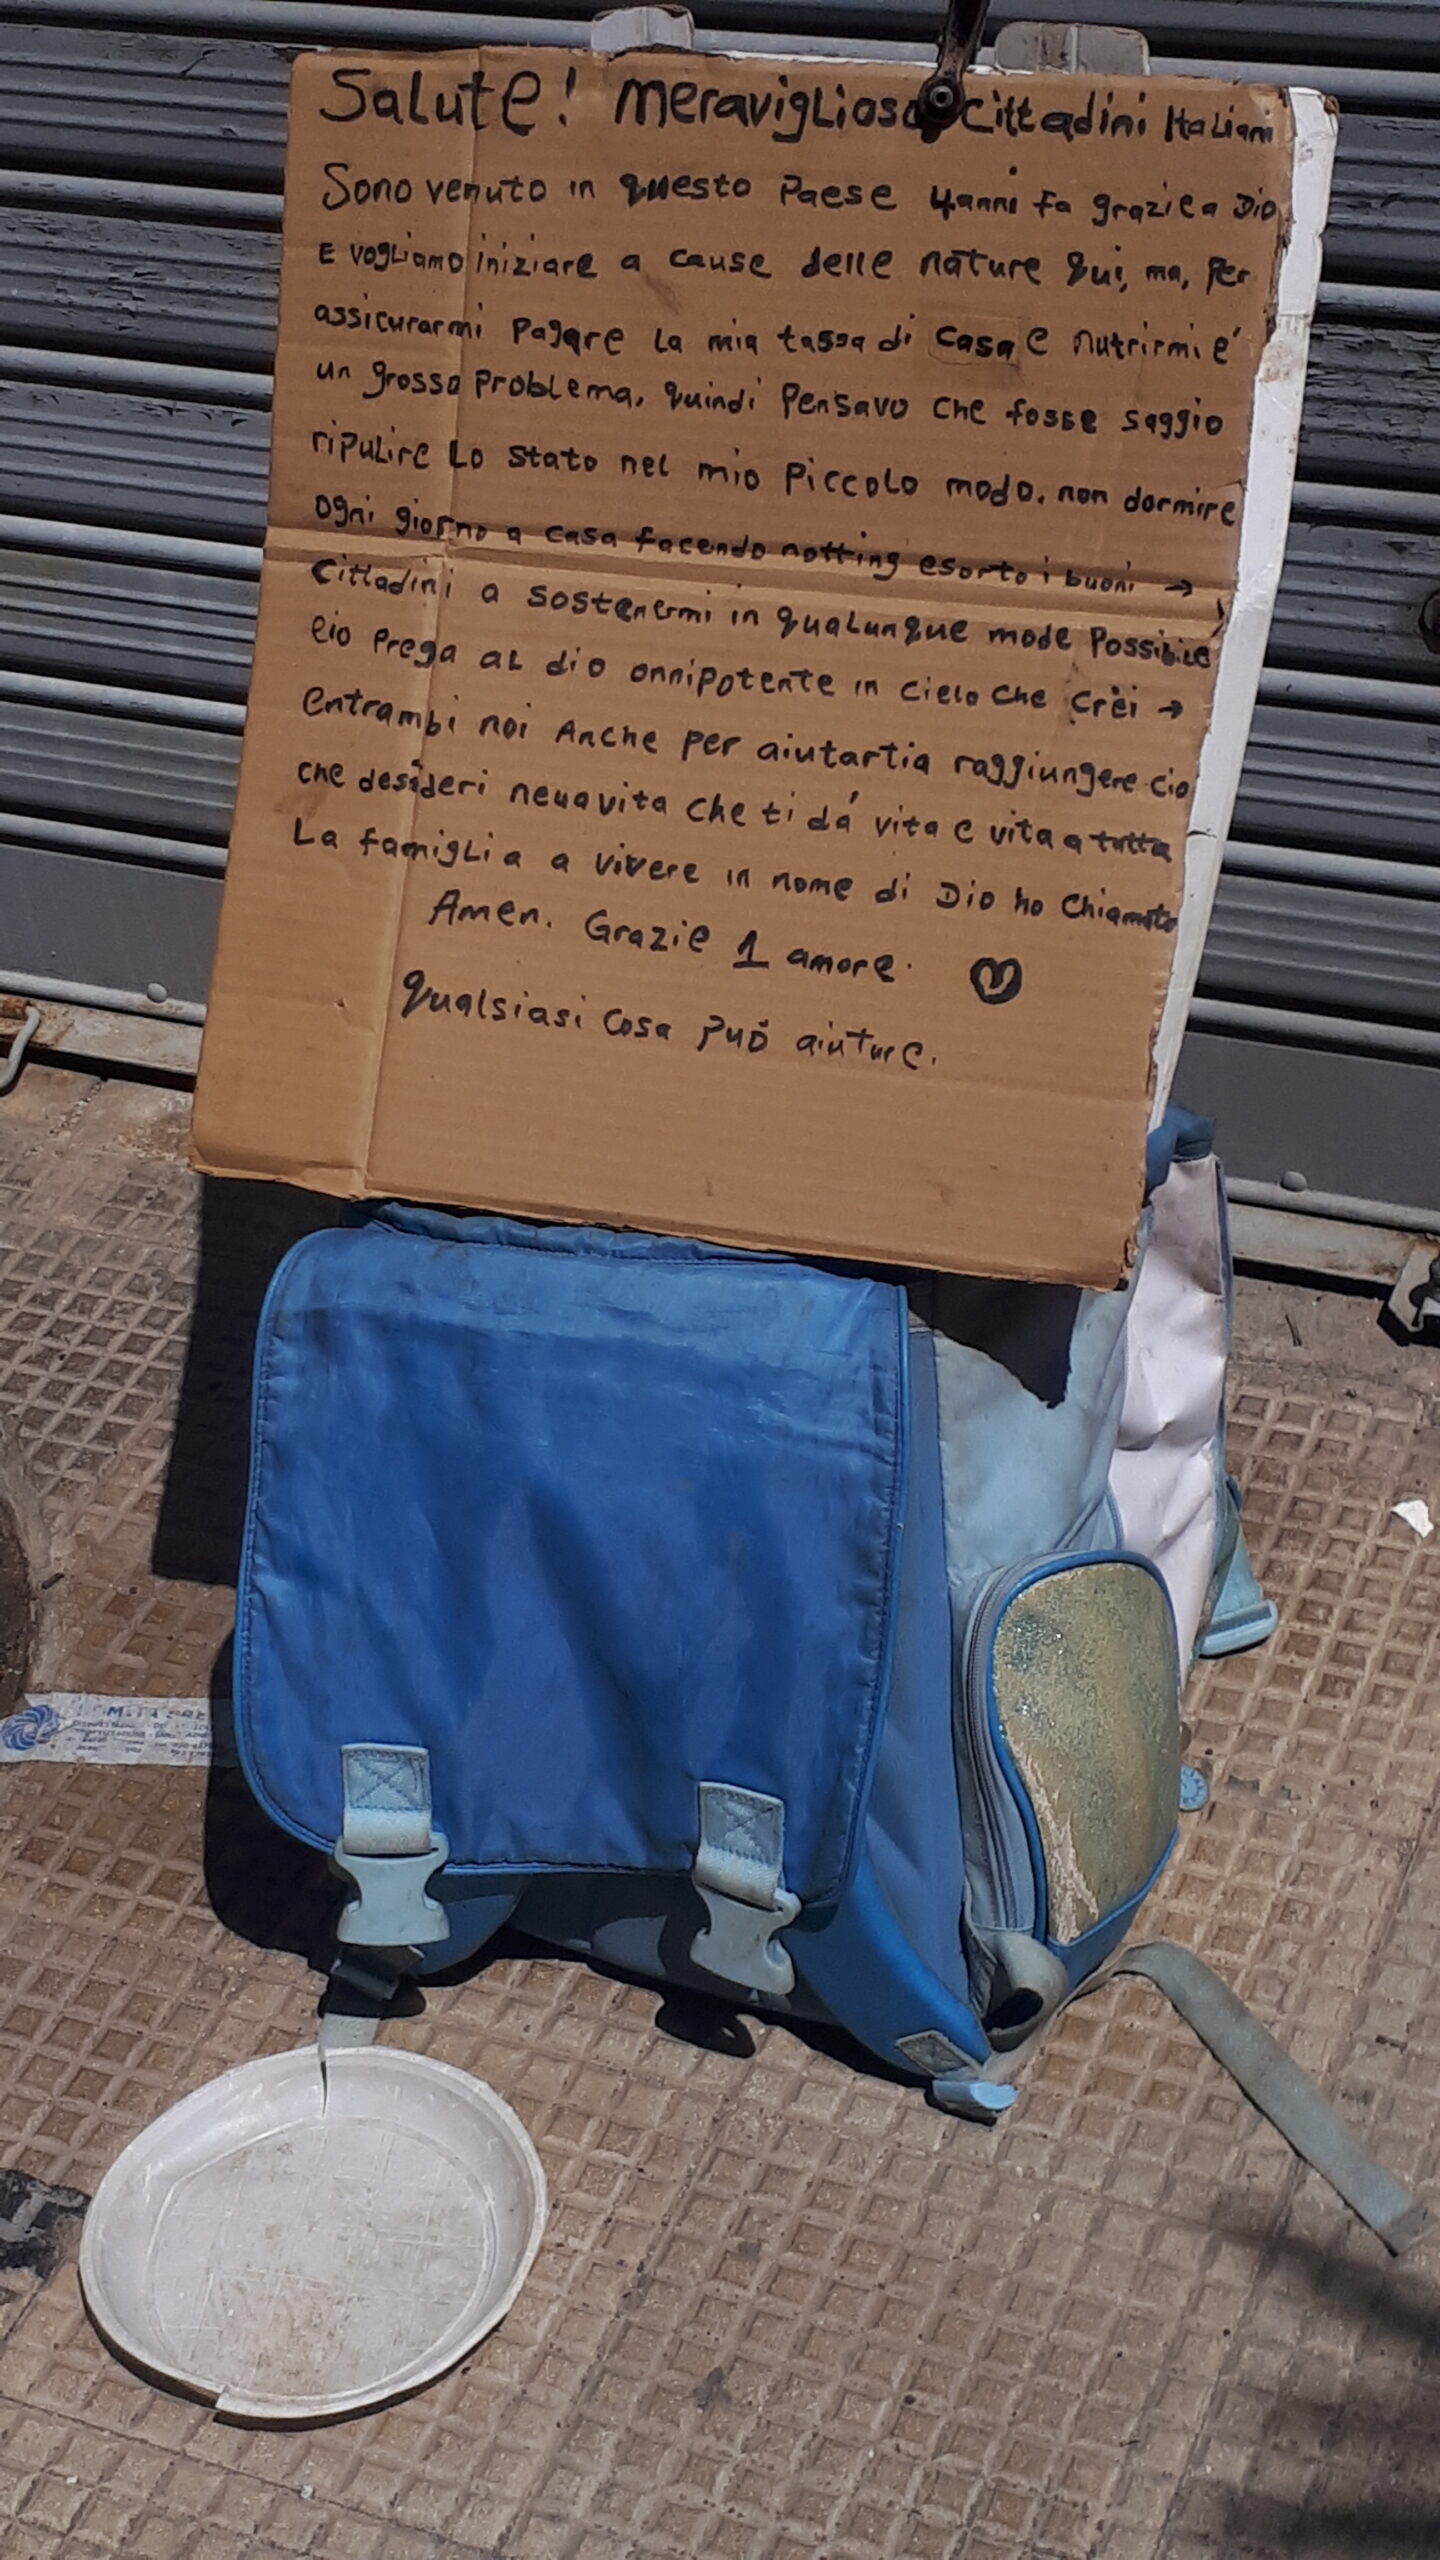 Salute! Meraviglioso Cittadini Italiani
Sono venuto in questo Paese 4 anni fa grazie a Dio
E vogliamo iniziare a cause delle nature qui, ma, Per
assicurarmi Pagare la mia tassa di casa e nutrirmi e'
un grosso Problema, quindi Pensavo che fosse saggio
ripulire Lo stato nel mio Piccolo modo. non dormire
ogni giorno a casa facendo notting esorto i buoni →
Cittadini a sostenermi in qualunque mode Possibile
eio Prega al dio onnipotente in cielo che crei →
entrambi noi Anche per aiutartia raggiungere cio
che desideri neuavita che ti dá vita e vita a tutta
La famiglia a vivere in nome di Dio ho chiamato
Amen. Grazie 1 amore.
qualsiasi cosa Può aiutare.